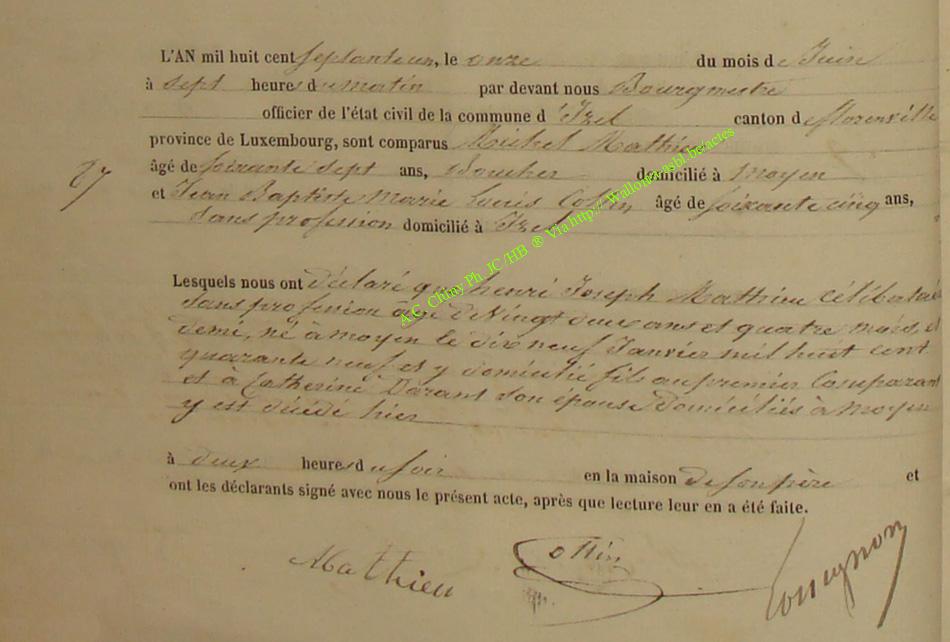 L'AN mil huit cent septante un, le onze du mois de Juin
à sept heures du matin par devant nous Bourgmestre
officier de l'état civil de la commune d'Izel canton de florenville
province de Luxembourg, sont comparus Michel Mathieu
âgé de soixante sept ans, domicilié à moyen
et Jean Baptiste Marie Louis Collin âgé de soixante cinq ans,
sans profession domicilié à Izel
87
Lesquels nous ont déclaré que henri Joseph Mathieu célibataire
sans profession âgé de Vingt deux ans et quatre mois et
demi, né à moyen le dix neuf Janvier mil huit cent
quarante neuf et y domicilié fils au premier Comparant
et à Catherine son épouse domiciliés à moyen
y est décédé hier
à deux heures du soir en la maison de son père et
ont les déclarants signé avec nous le présent acte, après que lecture leur en a été faite.
Mathieu
A.C. Chiny Ph. JC /HB ® Via http://Wallonia.asbl.be.actes